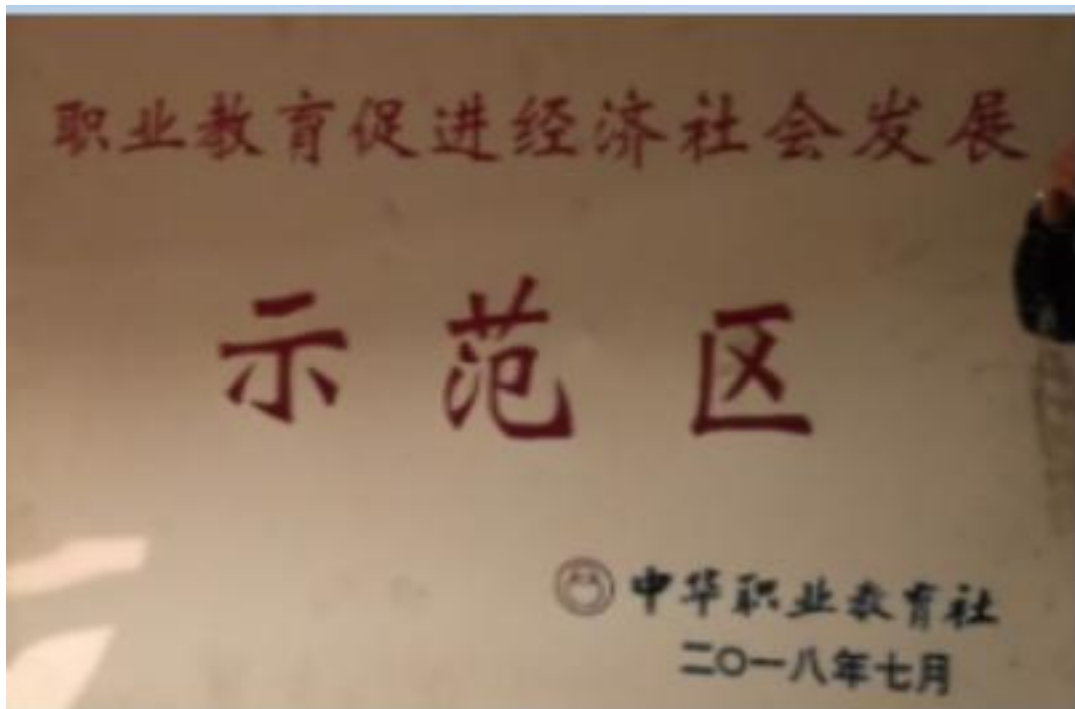 职业教育促进经济社会发展
示范区
中华职业教育社
二〇一八年七月